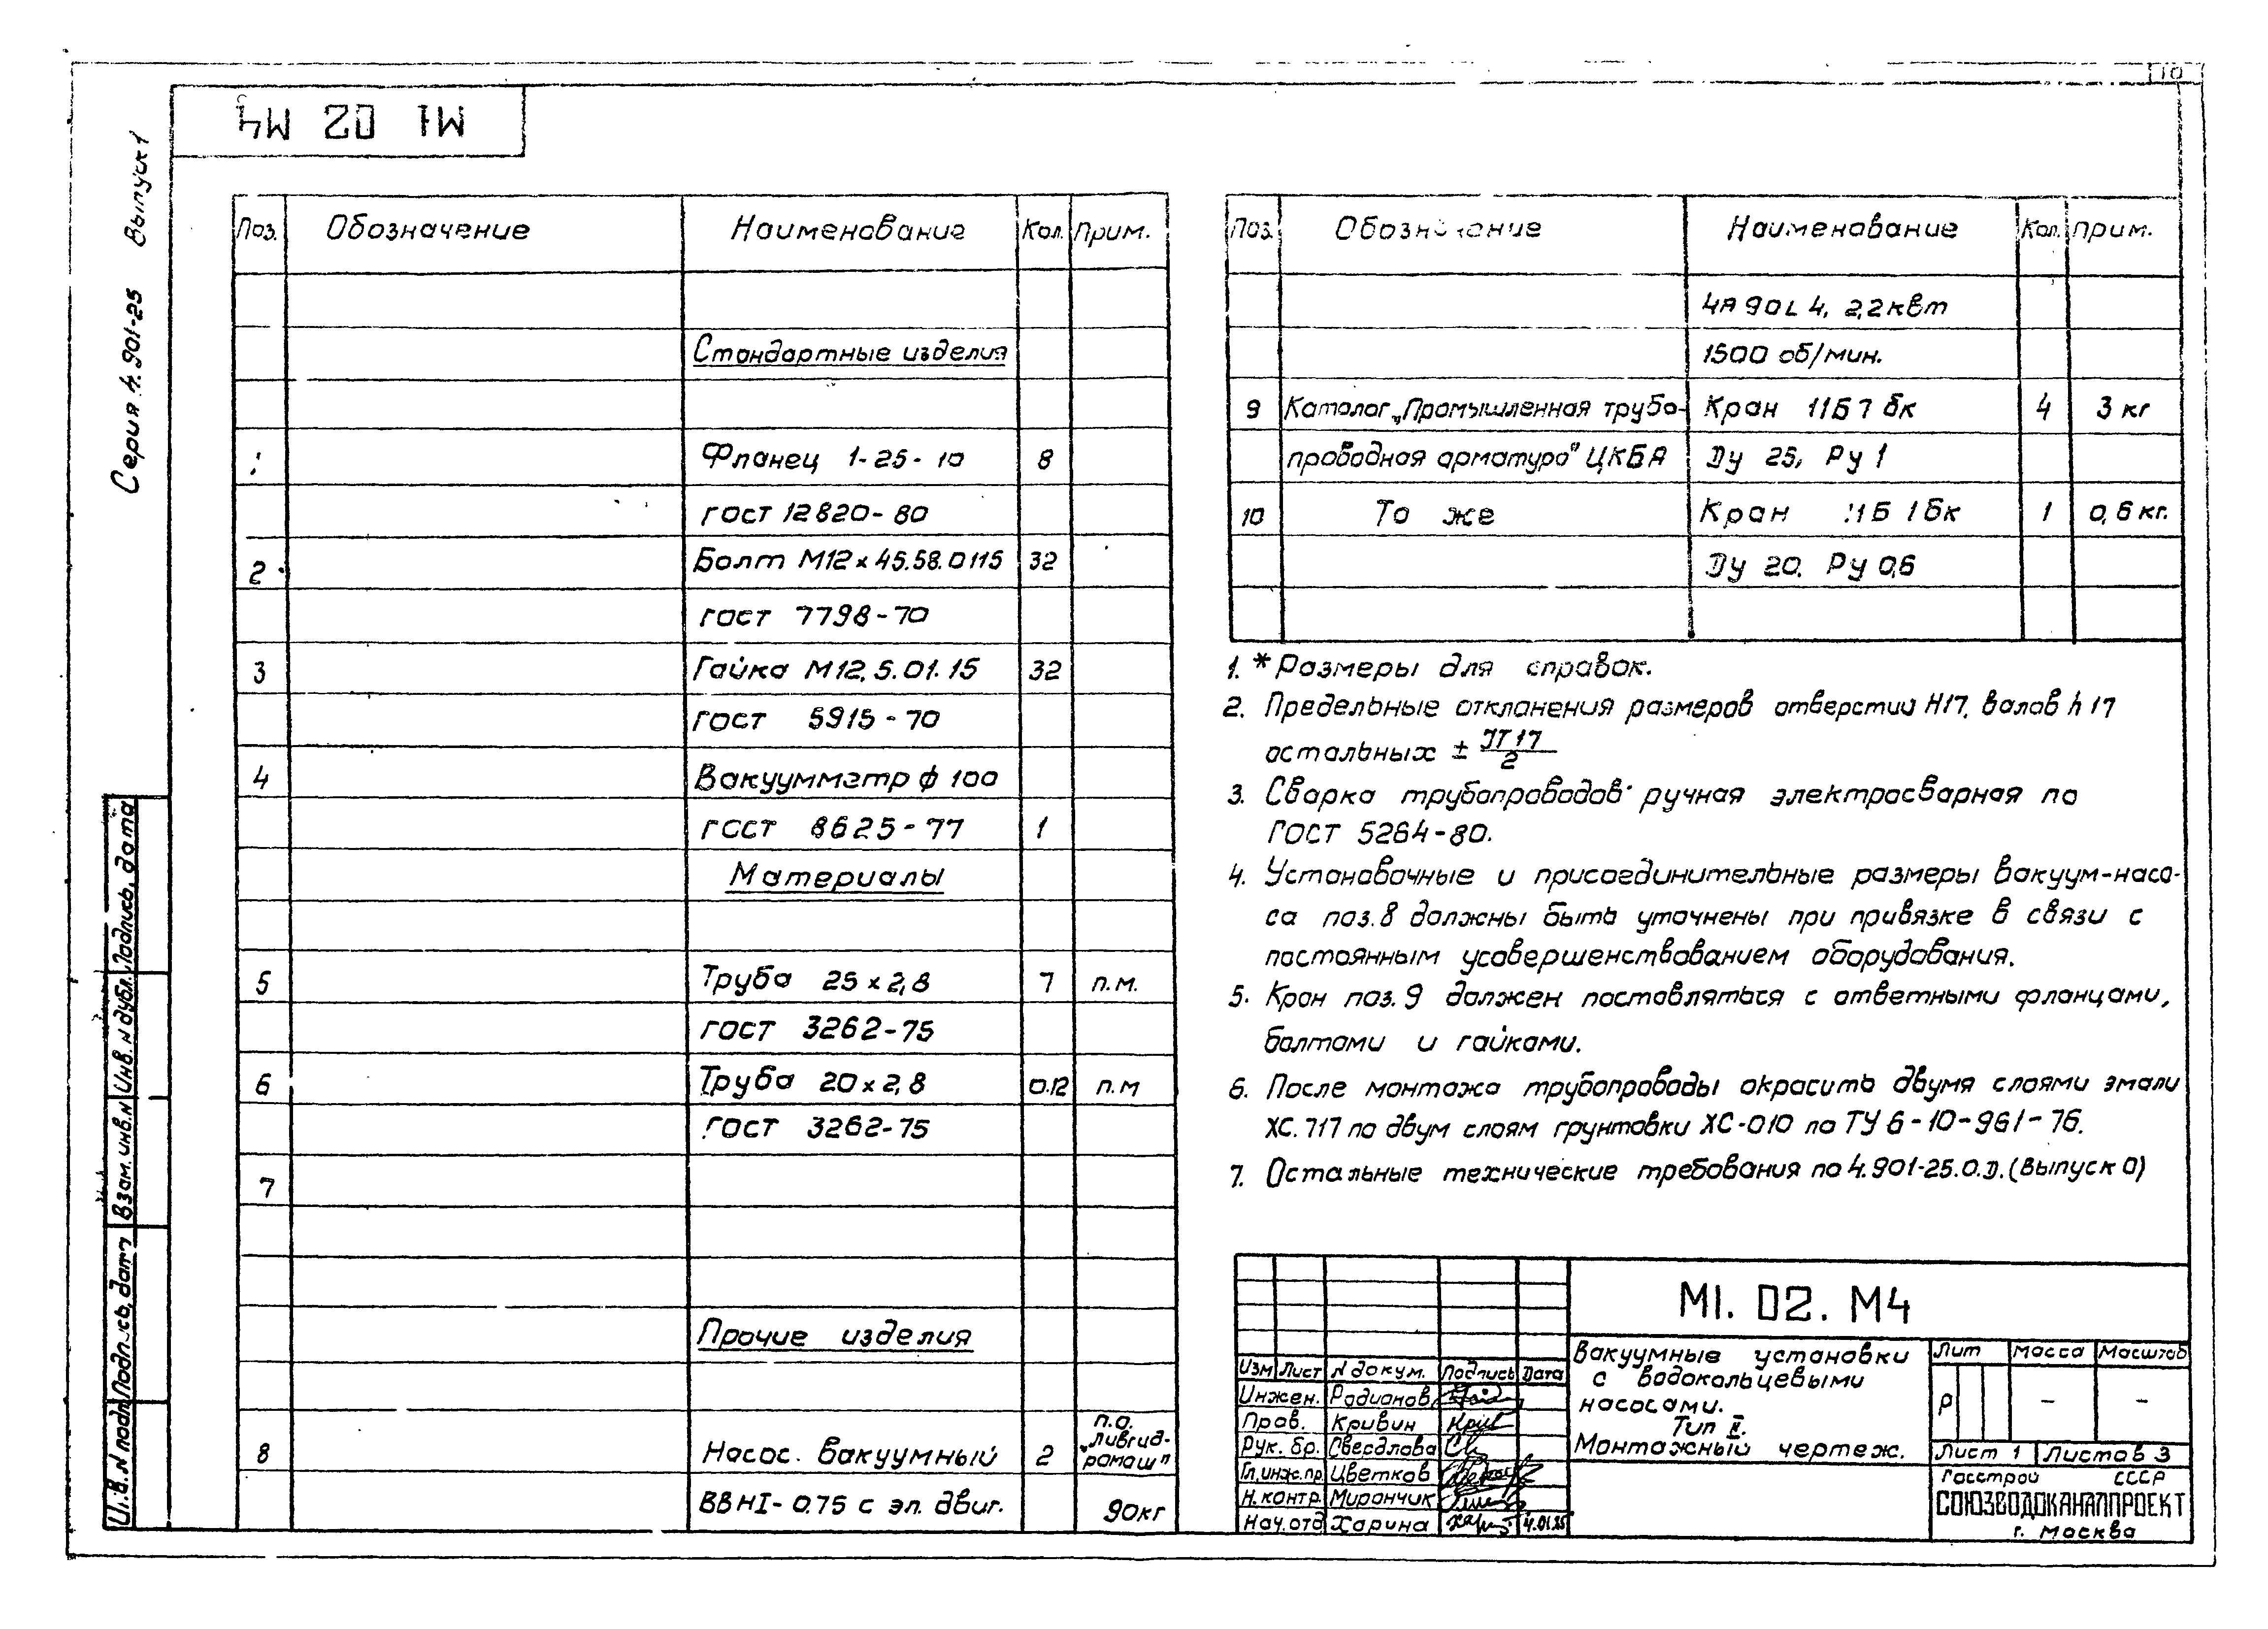 10
М1 02 М4
Серия 4.901-25 Выпуск 1
Поз. Обозначение Наименование Кол. Прим.
Стандартные изделия
1 Фланец 1-25-10 8
ГОСТ 12820-80
2 Болт М12х45.58.0115 32
ГОСТ 7798-70
3 Гайка М12.5.01.15 32
ГОСТ 5915-70
4 Вакуумметр ф 100
ГОСТ 8625-77 1
Материалы
5 Труба 25х2,8 7 п.м.
ГОСТ 3262-75
6 Труба 20х2,8 0.12 п.м
ГОСТ 3262-75
7
Прочие изделия
8 Насос. вакуумный 2 п.о. „Ливгид-ромаш"
ВВНI-0.75 с эл. двиг. 90кг
Поз. Обозначение Наименование Кол. Прим.
4А90L4, 2,2квт
1500 об/мин.
9 Каталог „Промышленная трубо- Кран 11Б7бк 4 3 кг
проводная арматура" ЦКБА Ду 25, Ру 1
10 То же Кран 11Б1бк 1 0,6 кг.
Ду 20. Ру 0,6
1. *Размеры для справок.
2. Предельные отклонения размеров отверстий Н17, валов h17
остальных ± IT17/2
3. Сварка трубопроводов ручная электросварная по
ГОСТ 5264-80.
4. Установочные и присоединительные размеры вакуум-насо-
са поз.8 должны быть уточнены при привязке в связи с
постоянным усовершенствованием оборудования.
5. Кран поз.9 должен поставляться с ответными фланцами,
болтами и гайками.
6. После монтажа трубопроводы окрасить двумя слоями эмали
ХС.717 по двум слоям грунтовки ХС-010 по ТУ 6-10-961-76.
7. Остальные технические требования по 4.901-25.О.Д.(Выпуск 0)
М1. 02. М4
Вакуумные установки
с водокольцевыми
насосами.
Тип II.
Монтажный чертеж.
Лит Масса Масштаб
Р – –
Лист 1 Листов 3
Госстрой СССР
СОЮЗВОДОКАНАЛПРОЕКТ
г. Москва
Изм Лист N докум. Подпись Дата
Инжен. Родионов
Пров. Кривин
Рук. бр. Свердлова
Гл.инж.пр. Цветков
Н. контр. Мирончик
Нач.отд Харина
Инв. N подл Подпись, дата Взам. инв. N Инв. N дубл. Подпись, дата